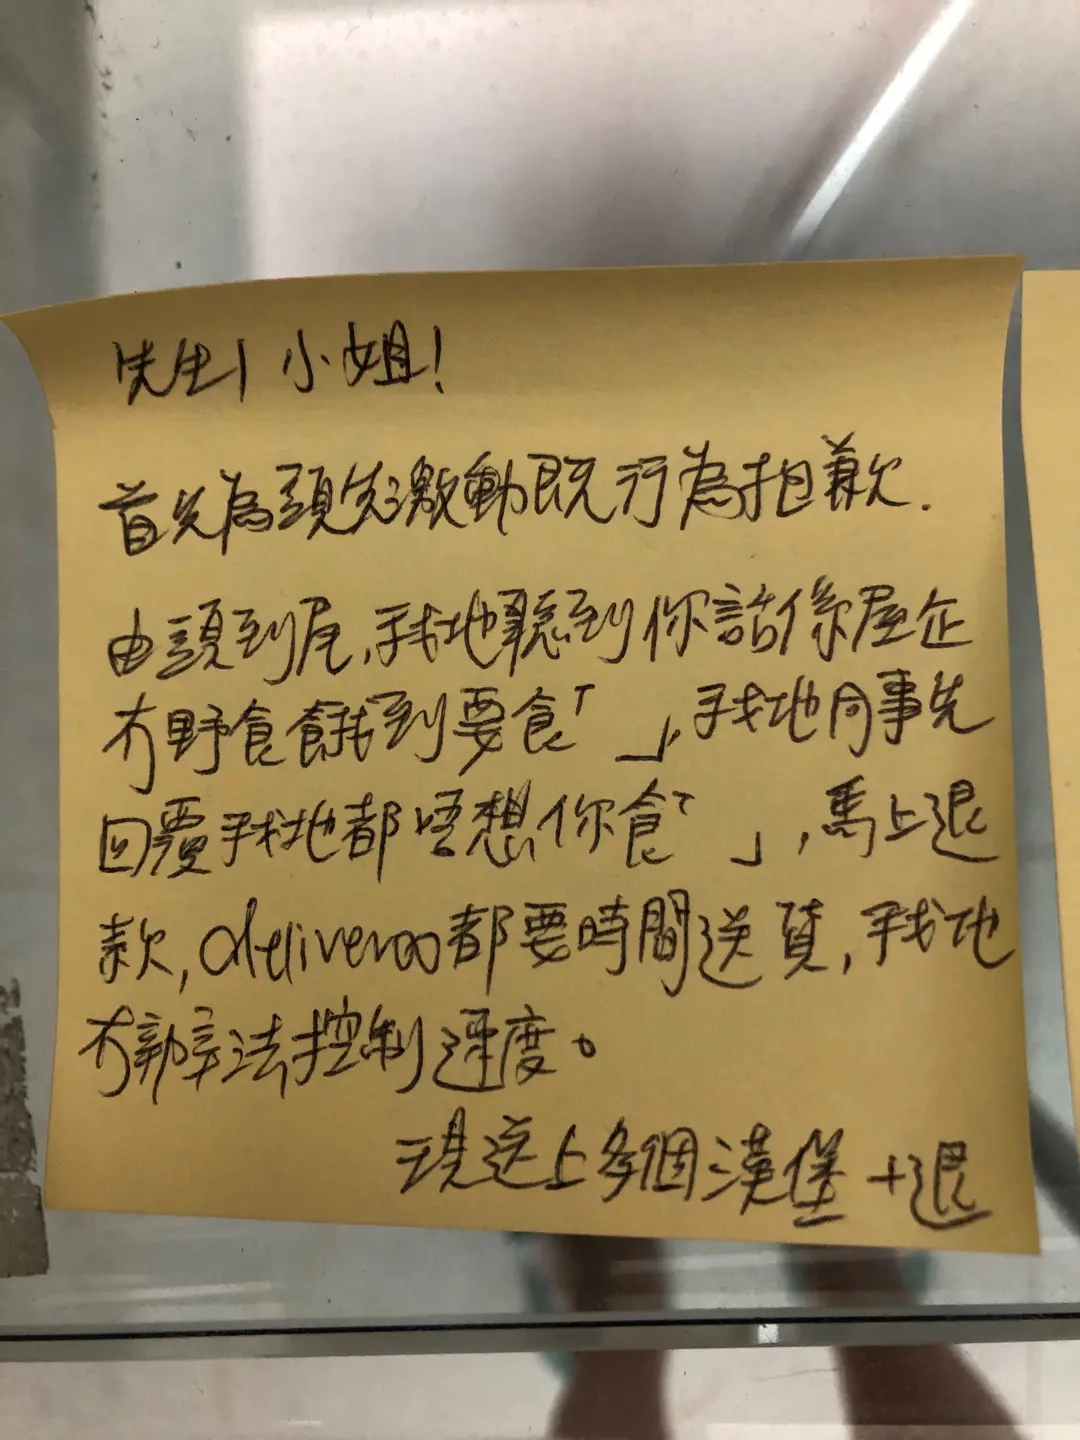 先生/小姐!
首先為頭先激動既行為抱歉.
由頭到尾,我地聽到你話係屋企
冇野食餓到要食「 」,我地同事先
回覆我地都唔想你食「 」,馬上退
款,deliveroo都要時間送貨,我地
冇辦法控制速度。
現送上多個漢堡+退